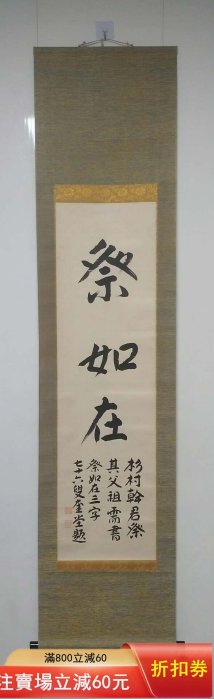 祭
如
在
杉村幹君祭
其父祖需書
祭如在三字
七十六雙奎堂題
滿800立減60
折扣券
注賣場立減60元